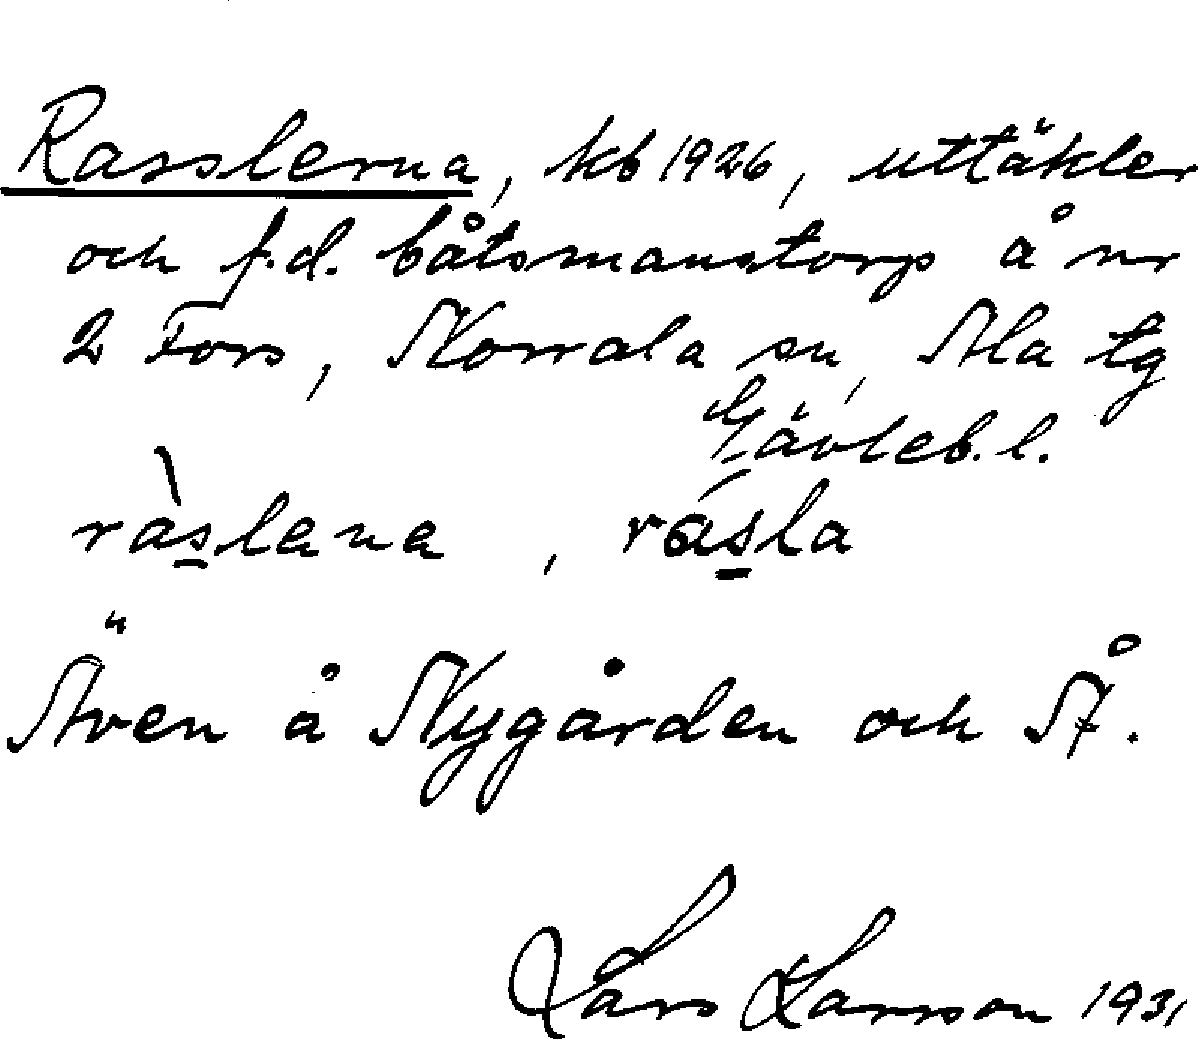 Rasslerna, kb 1926, uttäkter
och f.d. båtsmanstorp å nr
2 Fors, Norrala sn, Ala tg
Gävleb. l.
ràs̲lana , rás̲la
Även å Nygården och Å.
Lars Larsson 1931